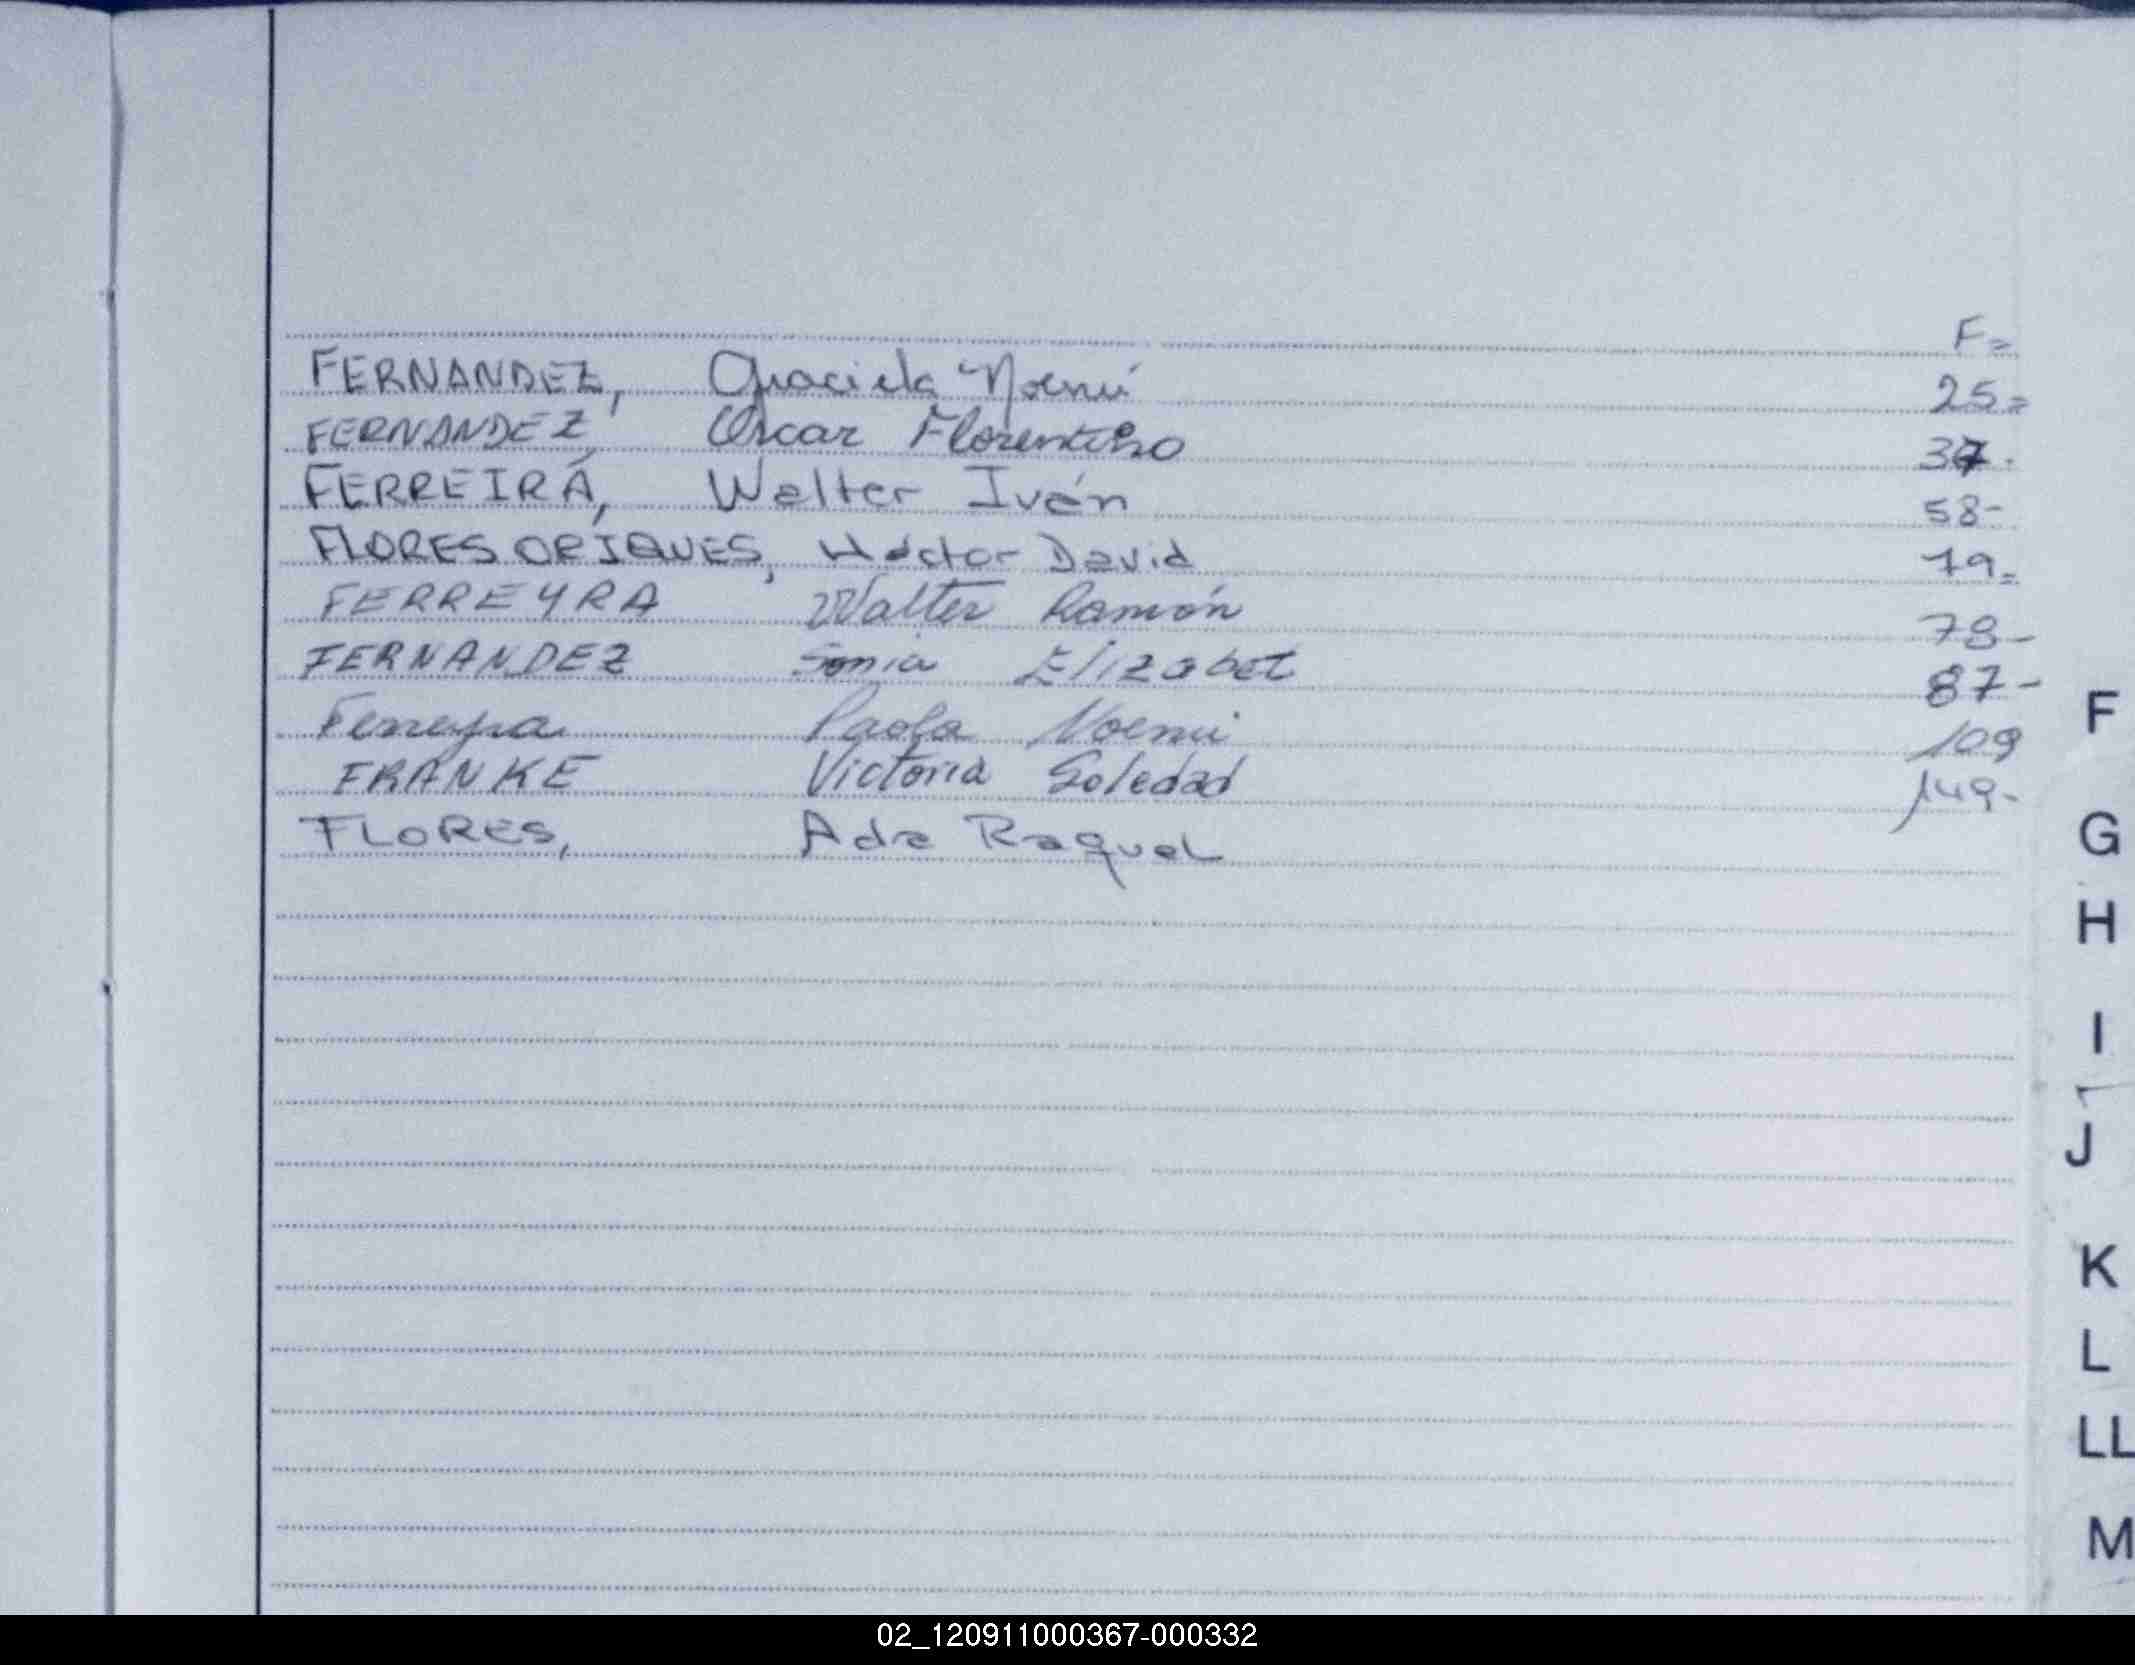 F=
FERNANDEZ, Graciela Noemí 25=
FERNANDEZ, Oscar Florentino 37-
FERREIRA, Walter Iván 58-
FLORES ORIQUES, Héctor David 79=
FERREYRA Walter Ramón 78-
FERNANDEZ Sonia Elizabet 87-
Ferreyra Paola Noemi 109
FRANKE Victoria Soledad 149-
FLORES, Ada Raquel
F
G
H
I
J
K
L
LL
M
02_120911000367-000332